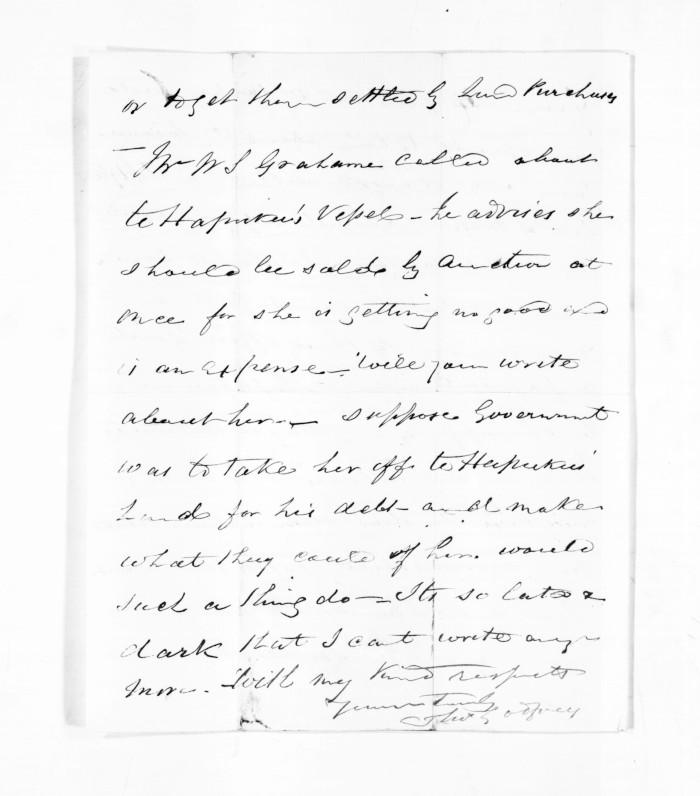 or to get them settled by Land Purchases
— Mr W S Grahame called about
te Hapuku's Vessel - he advises she
should be sold by auction at
once for she is getting no good and
is an expense - Will you write
about her - suppose Government
was to take her off te Hapuku's
hands for his debt and make
what they could of her. would
such a thing do - Its so late &
dark that I cant write any
more. With my kind respects
Yours Truly